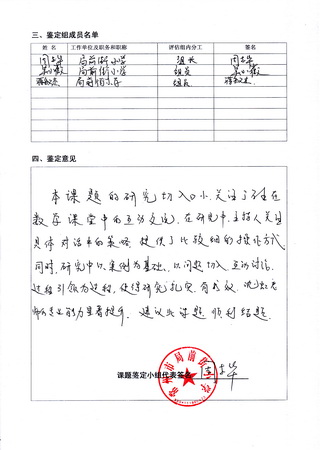 三、鉴定组成员名单
姓名 工作单位及职务和职称 评估组内分工 签名
局前街小学 组长
局前街小学 组员
局前街小学 组员
四、鉴定意见
本课题的研究切入口小,关注了生在
数学课堂中的互动交流。在研究中,主持人关注
具体对话中的策略,提供了比较细的操作方式
同时,研究中以案例为基础,以问题切入、互动讨论、
过程引领为过程,使得研究扎实、有成效,
师专业能力显著提升。建议此课题顺利结题。
课题鉴定小组代表签名
常州市局前街小学